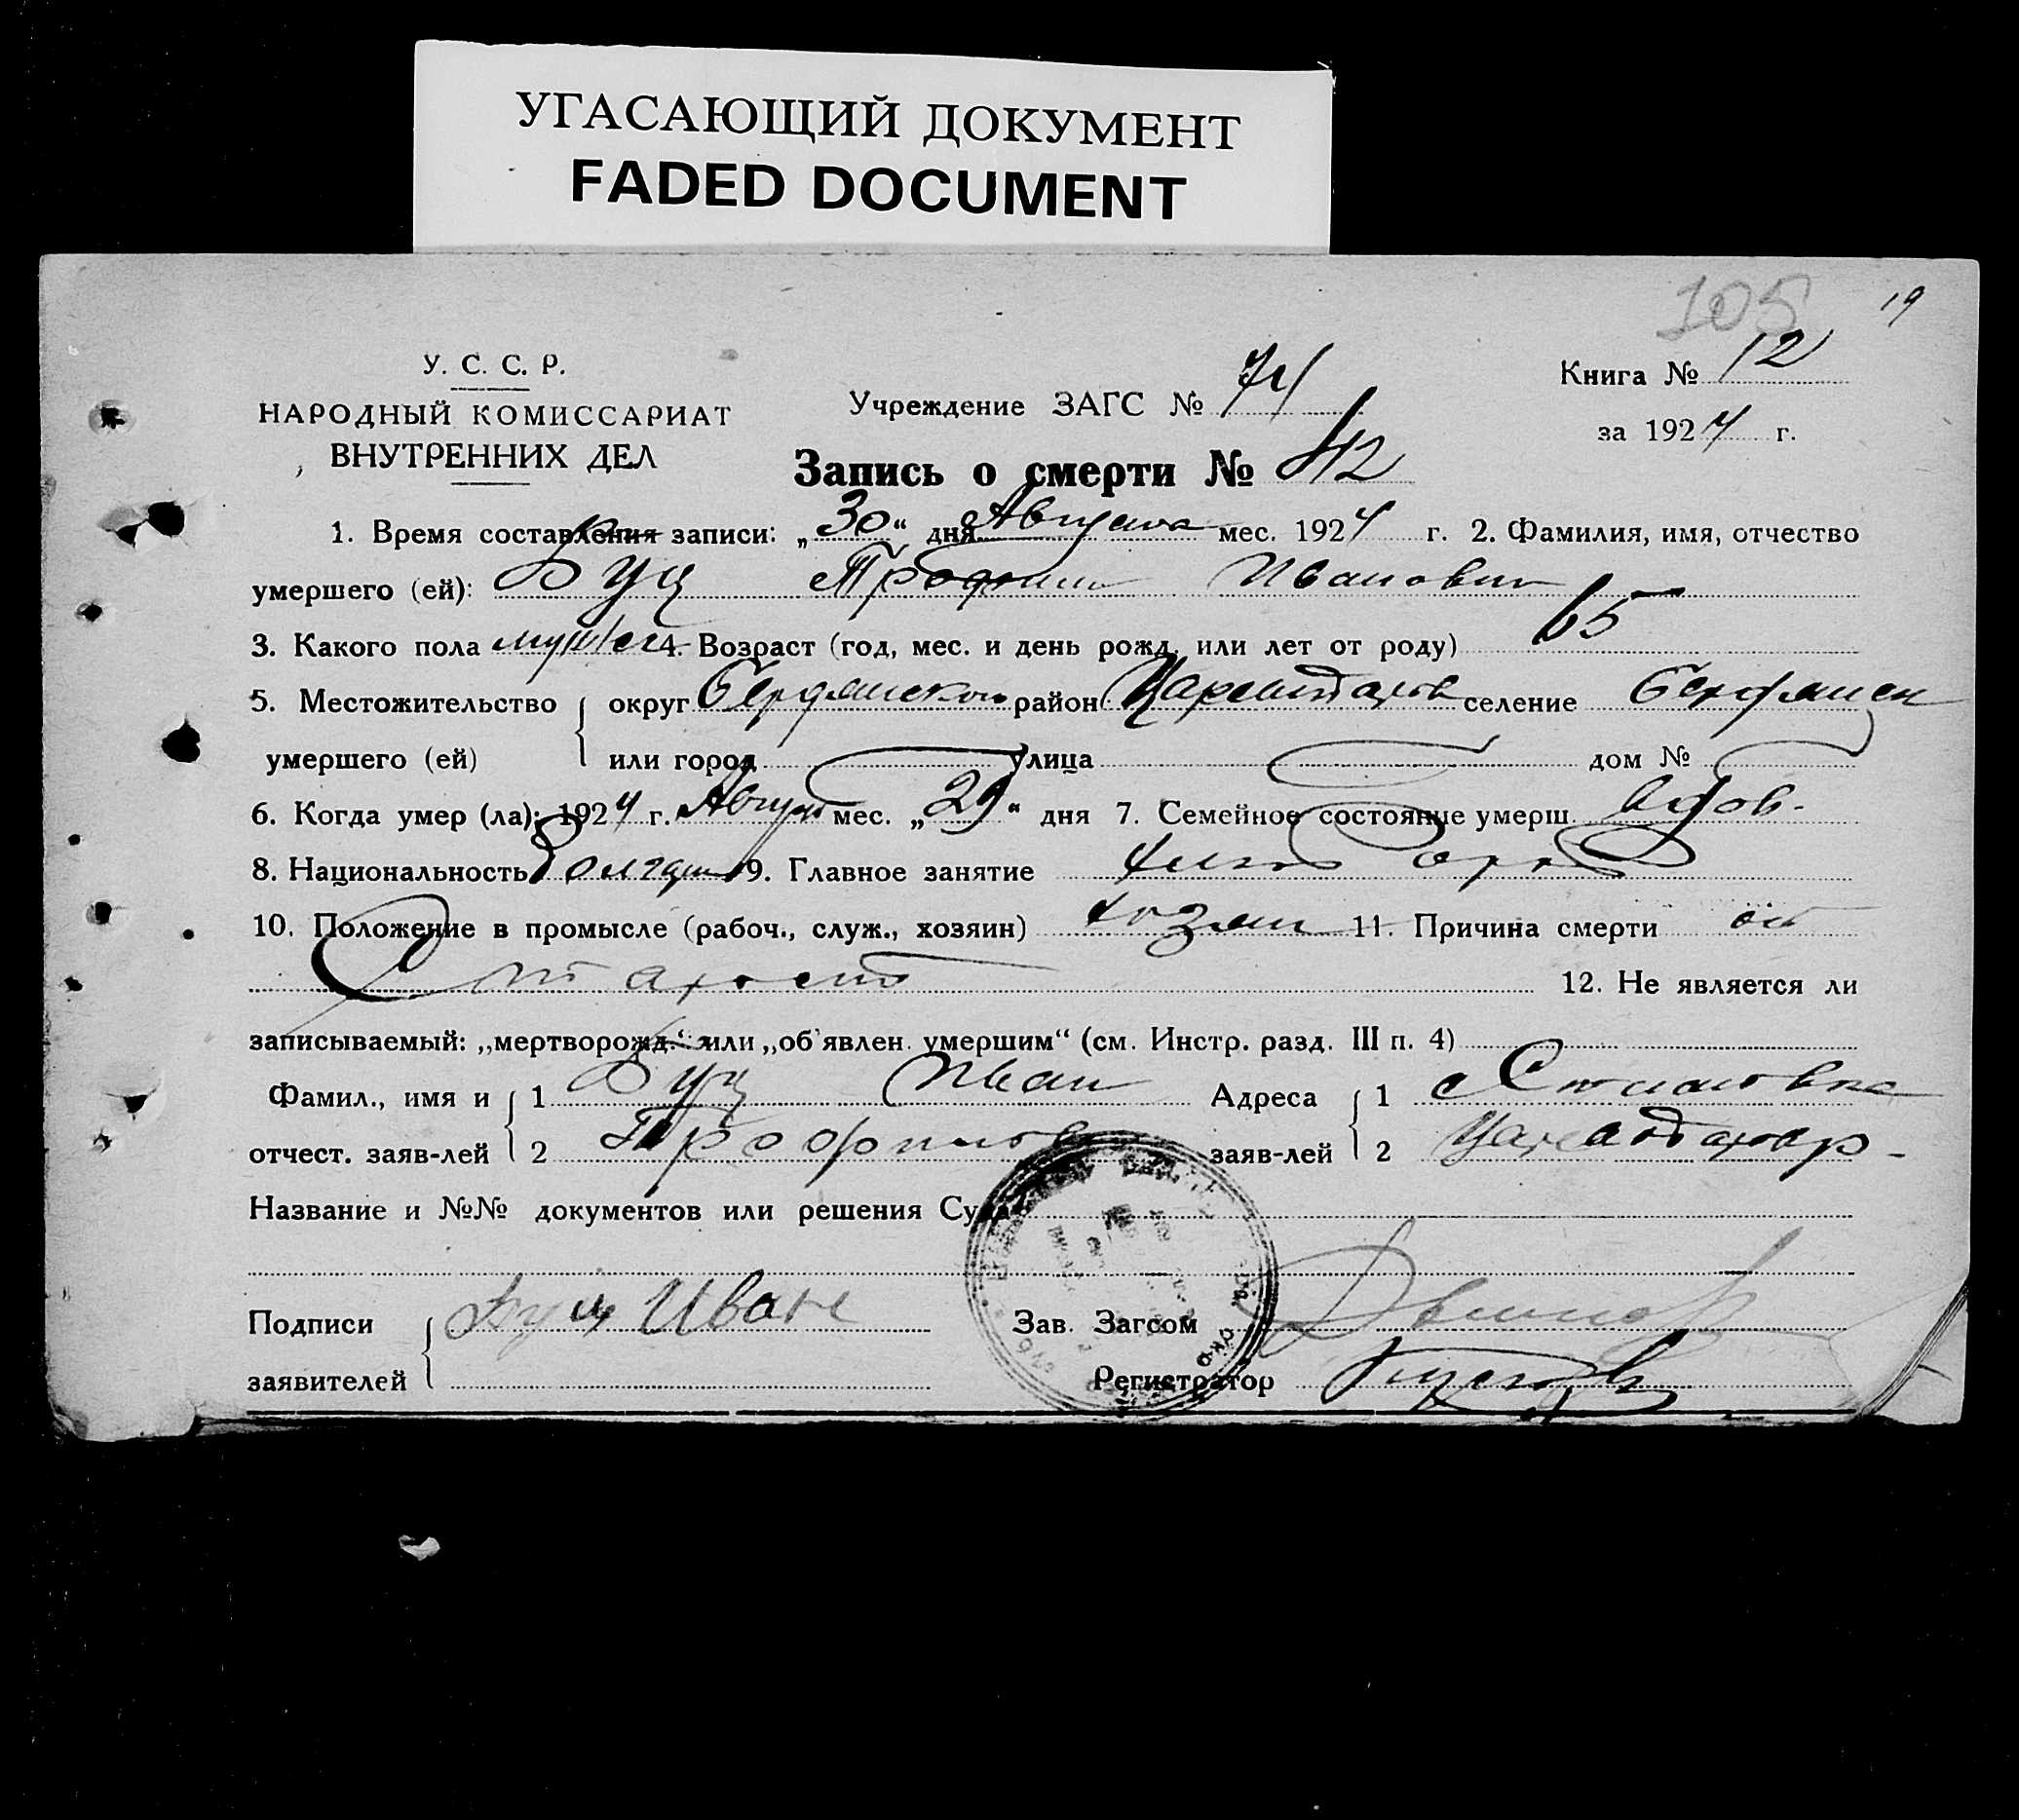 УГАСАЮЩИЙ ДОКУМЕНТ
FADED DOCUMENT
105 19
У. С. С. Р.
НАРОДНЫЙ КОМИССАРИАТ
ВНУТРЕННИХ ДЕЛ
Учреждение ЗАГС № 74
Книга № 12
за 1924 г.
Запись о смерти № 42
1. Время составления записи: „30“ дня Августа мес. 1924 г. 2. Фамилия, имя, отчество
умершего (ей): Буц Трофим Иванович
3. Какого пола 4. Возраст (год, мес. и день рожд. или лет от роду) 65
5. Местожительство округ Бердянского район селение
умершего (ей) или город улица дом №
6. Когда умер (ла): 1924 г. Август мес. „29“ дня 7. Семейное состояние умерш. вдов-
8. Национальность Болгарин 9. Главное занятие
10. Положение в промысле (рабоч., служ., хозяин) хозяин 11. Причина смерти от
Старости 12. Не является ли
записываемый: „мертворожд.“ или „об'явлен. умершим“ (см. Инстр. разд. III п. 4)
Фамил., имя и 1 Буц Иван Адреса 1
отчест. заяв-лей 2 Трофимов заяв-лей 2
Название и №№ документов или решения Суда
Подписи Буц Иван Зав. Загсом
заявителей Регистратор